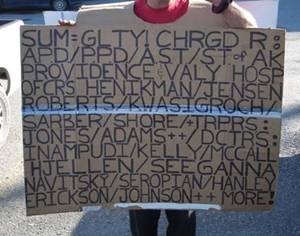 SUM=GLTY, CHRGD R:
APD/PPD/AST/ST of AK
PROVIDENCE & VALY HOSP
OFCRS HENIKMAN/JENSEN
ROBERTS/KWASIGROCH/
SABBER/SHORE/+THERS::
JONES/ADAMS++/DCTRS::
INAMPUDI/KELLY/MCCALL
HJELLEN, SEEGANNA
NAVITSKY/SEROPIAN/HANLEY
ERICKSON/JOHNSON + MORE!